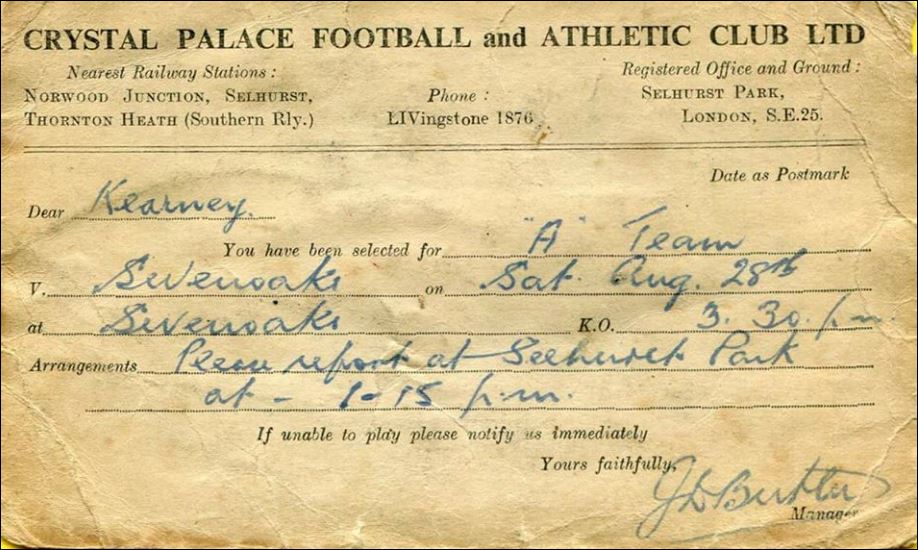 CRYSTAL PALACE FOOTBALL and ATHLETIC CLUB LTD
Nearest Railway Stations:
NORWOOD JUNCTION, SELHURST,
THORNTON HEATH (Southern Rly.)
Phone:
LIVingstone 1876
Registered Office and Ground:
SELHURST PARK,
LONDON, S.E.25.
Date as Postmark
Dear Kearney.
You have been selected for "A" Team
V. Sevenoaks on Sat. Aug. 28th
at Sevenoaks K.O. 3.30.p.m.
Arrangements Please report at Selhurst Park
at - 1-15 p.m.
If unable to play please notify us immediately
Yours faithfully,
J D Butler
Manager